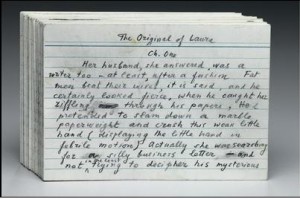 The Original of Laura
Ch. One
Her husband, she answered, was a
writer, too — at least, after a fashion. Fat
men beat their wives, it is said, and he
certainly looked fierce, when he caught her
riffling through his papers. He
pretended to slam down a marble
paperweight and crush this weak little
hand (displaying the little hand in
febrile motion) Actually she was searching
for a silly business letter — and
not trying to decipher his mysterious